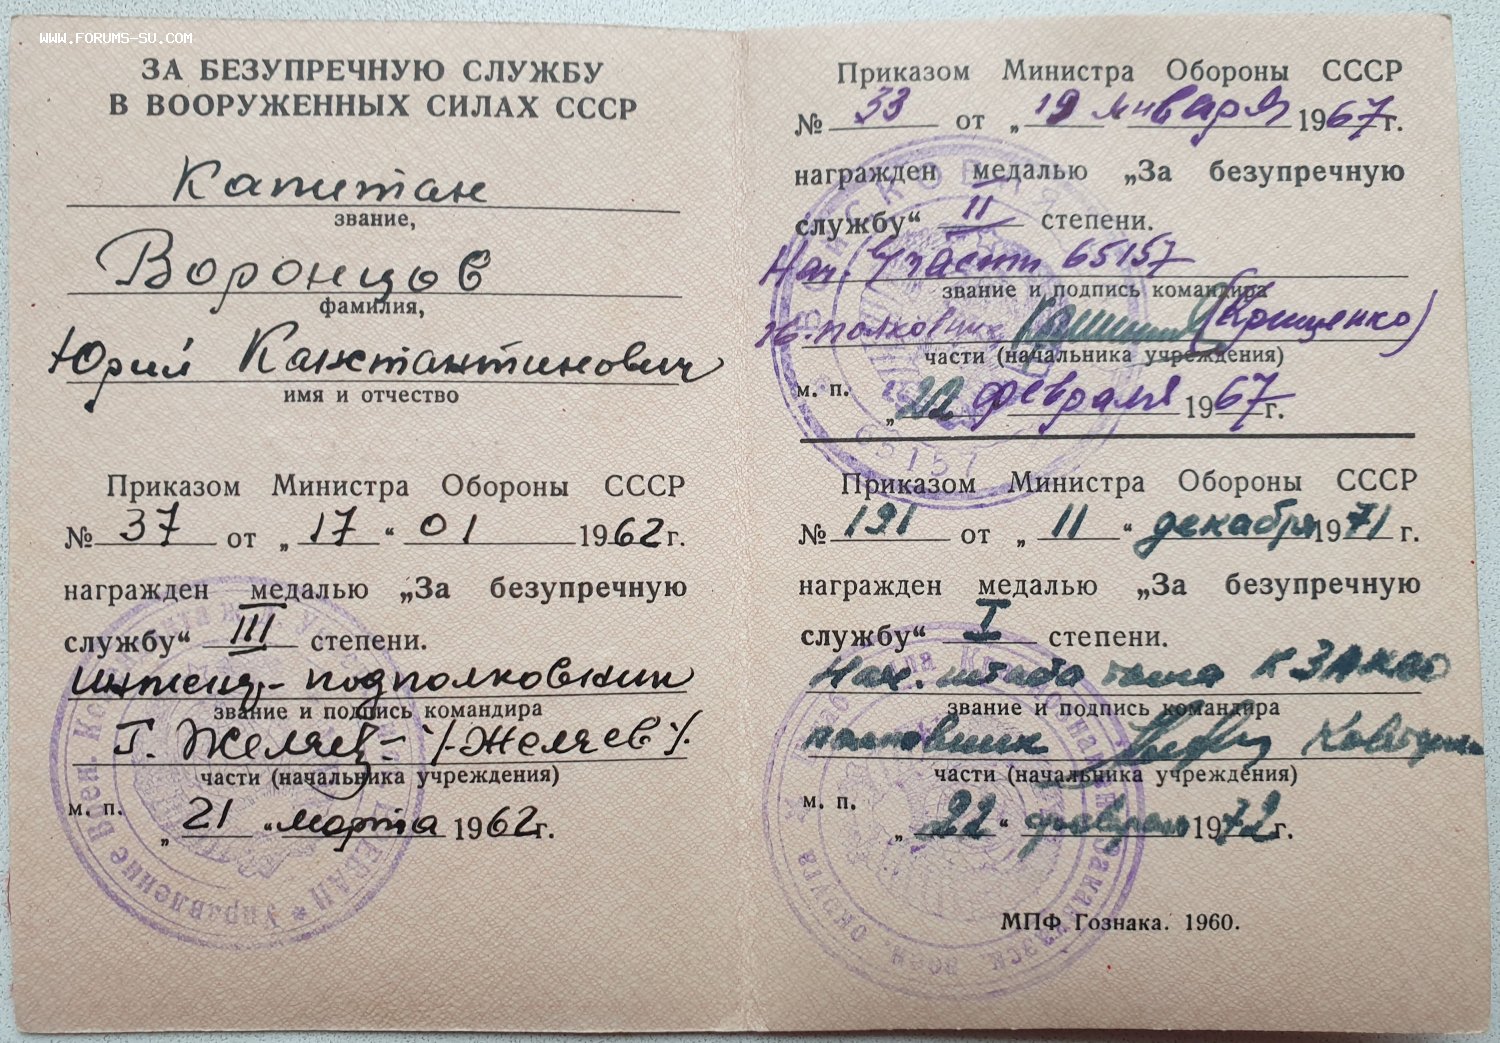 www.forums-su.com
ЗА БЕЗУПРЕЧНУЮ СЛУЖБУ
В ВООРУЖЕННЫХ СИЛАХ СССР
Капитан
звание,
Воронцов
фамилия,
Юрий Константинович
имя и отчество
Приказом Министра Обороны СССР
№ 37 от „ 17 “ 01 1962 г.
награжден медалью „За безупречную
службу“ III степени.
Инженер-подполковник
звание и подпись командира
Г. Желяев - /-Желяев/.
части (начальника учреждения)
м. п.
„ 21 “ марта 1962 г.
Приказом Министра Обороны СССР
№ 33 от „ 19 января 1967 г.
награжден медалью „За безупречную
службу“ II степени.
Нач. части 65157
звание и подпись командира
полковник (Крищенко)
части (начальника учреждения)
м. п.
„ 22 февраля 1967 г.
65157
Приказом Министра Обороны СССР
№ 191 от „ 11 “ декабря 1971 г.
награжден медалью „За безупречную
службу“ I степени.
Нач. штаба тыла КЗакВО
звание и подпись командира
полковник
части (начальника учреждения)
м. п.
„ 22 “ февраля 1972 г.
МПФ Гознака. 1960.